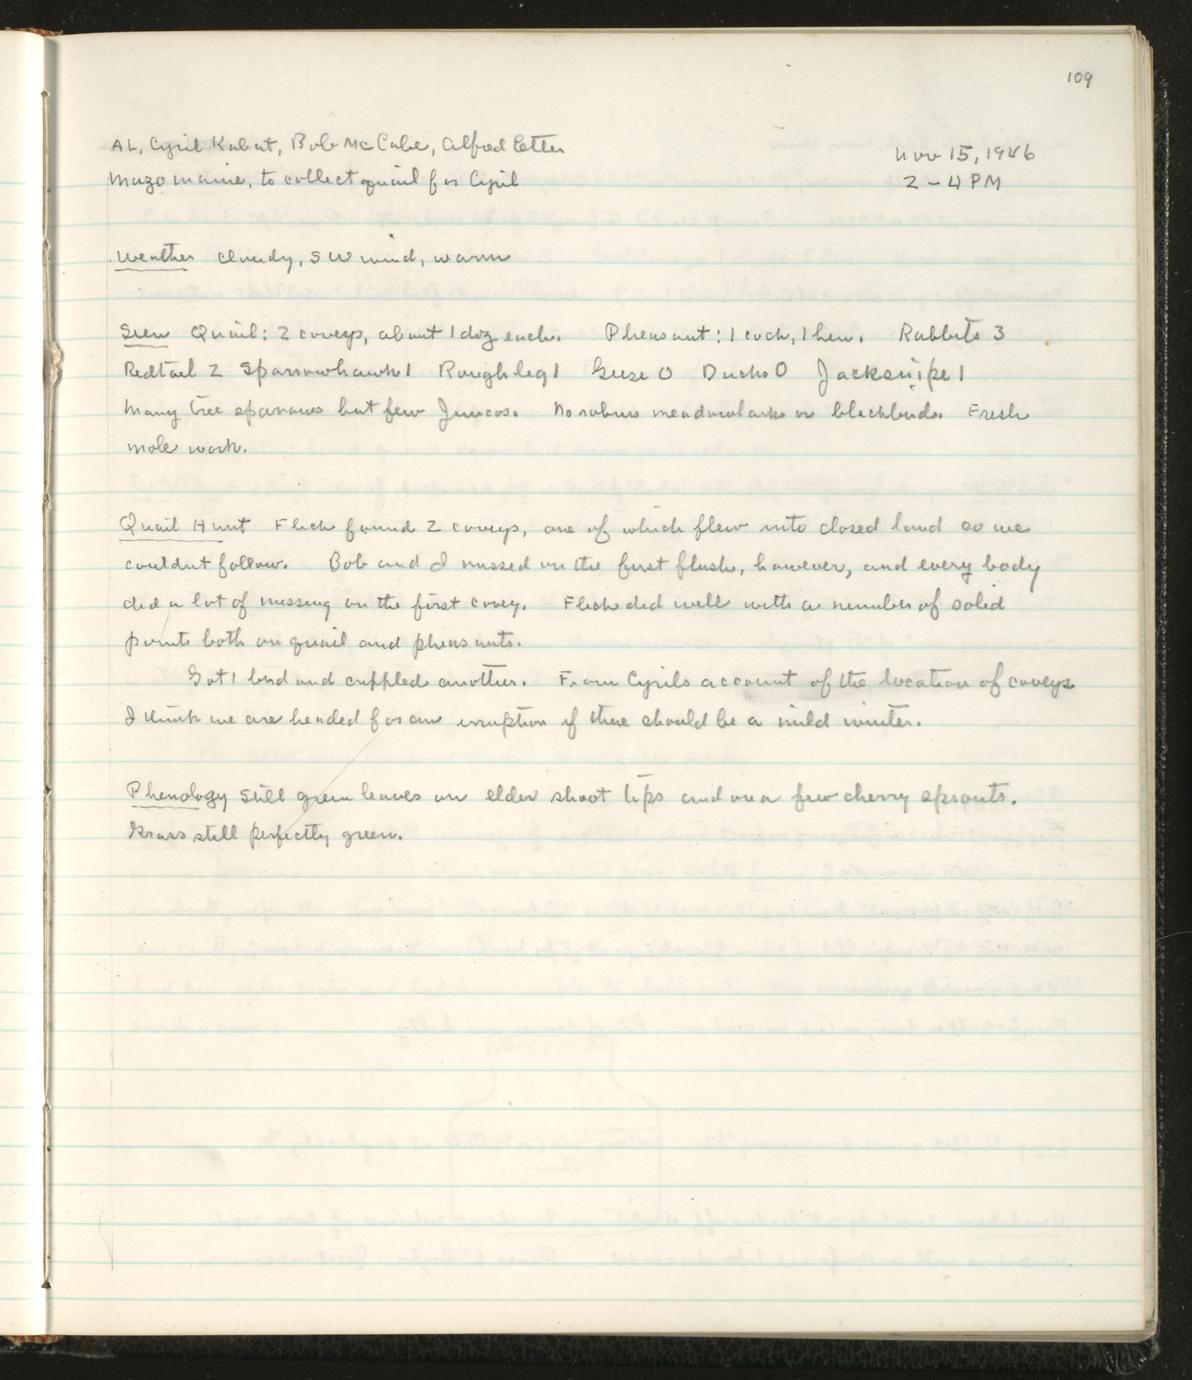 109
AL, Cyril Kabat, Bob McCabe, Alfred Etter
Nov 15, 1946
Mazomanie, to collect quail for Cyril
2 - 4 PM
Weather cloudy, SW wind, warm
Seen Quail: 2 coveys, about 1 doz each. Pheasant: 1 cock, 1 hen. Rabbits 3
Redtail 2 Sparrowhawk 1 Roughleg 1 Geese 0 Ducks 0 Jacksnipe 1
Many tree sparrows but few Juncos. No robins meadowlarks or blackbirds. Fresh
mole work.
Quail Hunt Flick found 2 coveys, one of which flew into closed land so we
couldnt follow. Bob and I missed on the first flush, however, and every body
did a lot of missing on the first covey. Flick did well with a number of solid
points both on quail and pheasants.
Got 1 bird and crippled another. From Cyrils account of the location of coveys
I think we are headed for an irruption if there should be a mild winter.
Phenology Still green leaves on elder shoot tips and on a few cherry sprouts.
Grass still perfectly green.